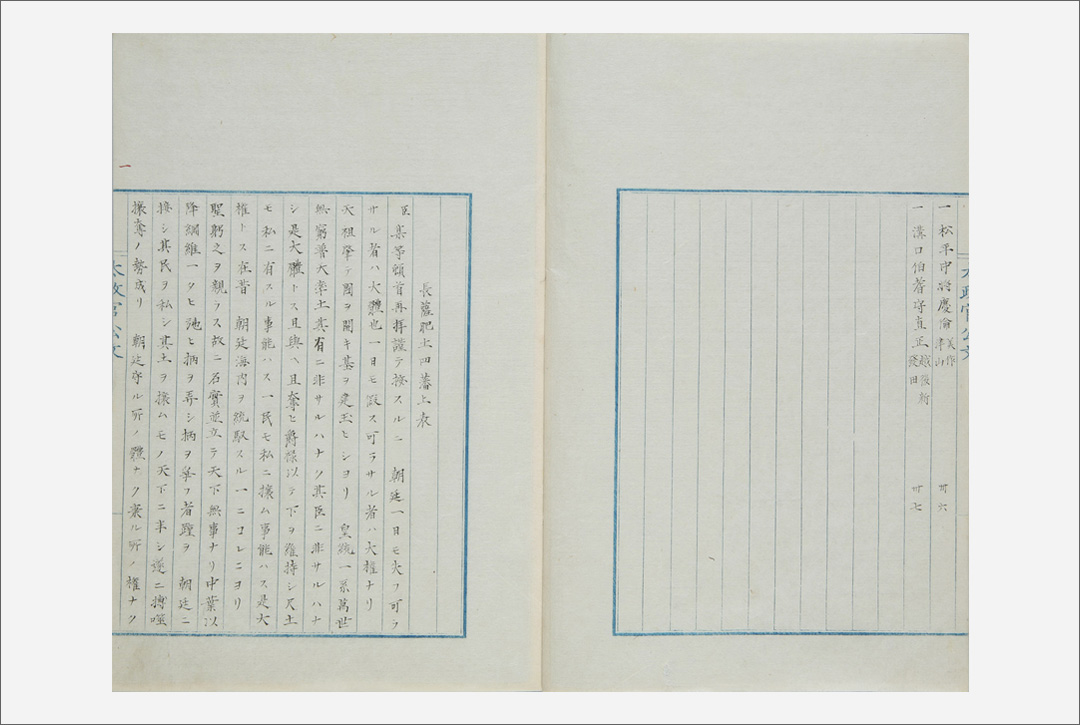 一 松平中将慶倫 美作津山 卅六
一 溝口伯耆守直正 越後新發田 卅七
太政官公文
長薩肥土四藩上表
臣某等頓首再拝謹テ按スルニ 朝廷一日モ失フ可ラ
サル者ハ大體也一日モ假ス可ラサル者ハ大權ナリ
天祖肇テ國ヲ開キ基ヲ建玉ヒシヨリ 皇統一系萬世
無窮普天率土其有ニ非サルハナク其臣ニ非サルハナ
シ是大體トス且與ヘ且奪ヒ爵禄以テ下ヲ維持シ尺土
モ私ニ有スル事能ハス一民モ私ニ攘ム事能ハス是大
權トス在昔 朝廷海内ヲ統馭スル一ニコレニヨリ
聖躬之ヲ親ラス故ニ名實並立テ天下無事ナリ中葉以
降綱維一タヒ弛ヒ柄ヲ弄シ柄ヲ爭フ者踵ヲ 朝廷ニ
接シ其民ヲ私シ其土ヲ攘ムモノ天下ニ半シ遂ニ搏噬
攘奪ノ勢成リ 朝廷守ル所ノ體ナク秉ル所ノ權ナク
一
太政官公文